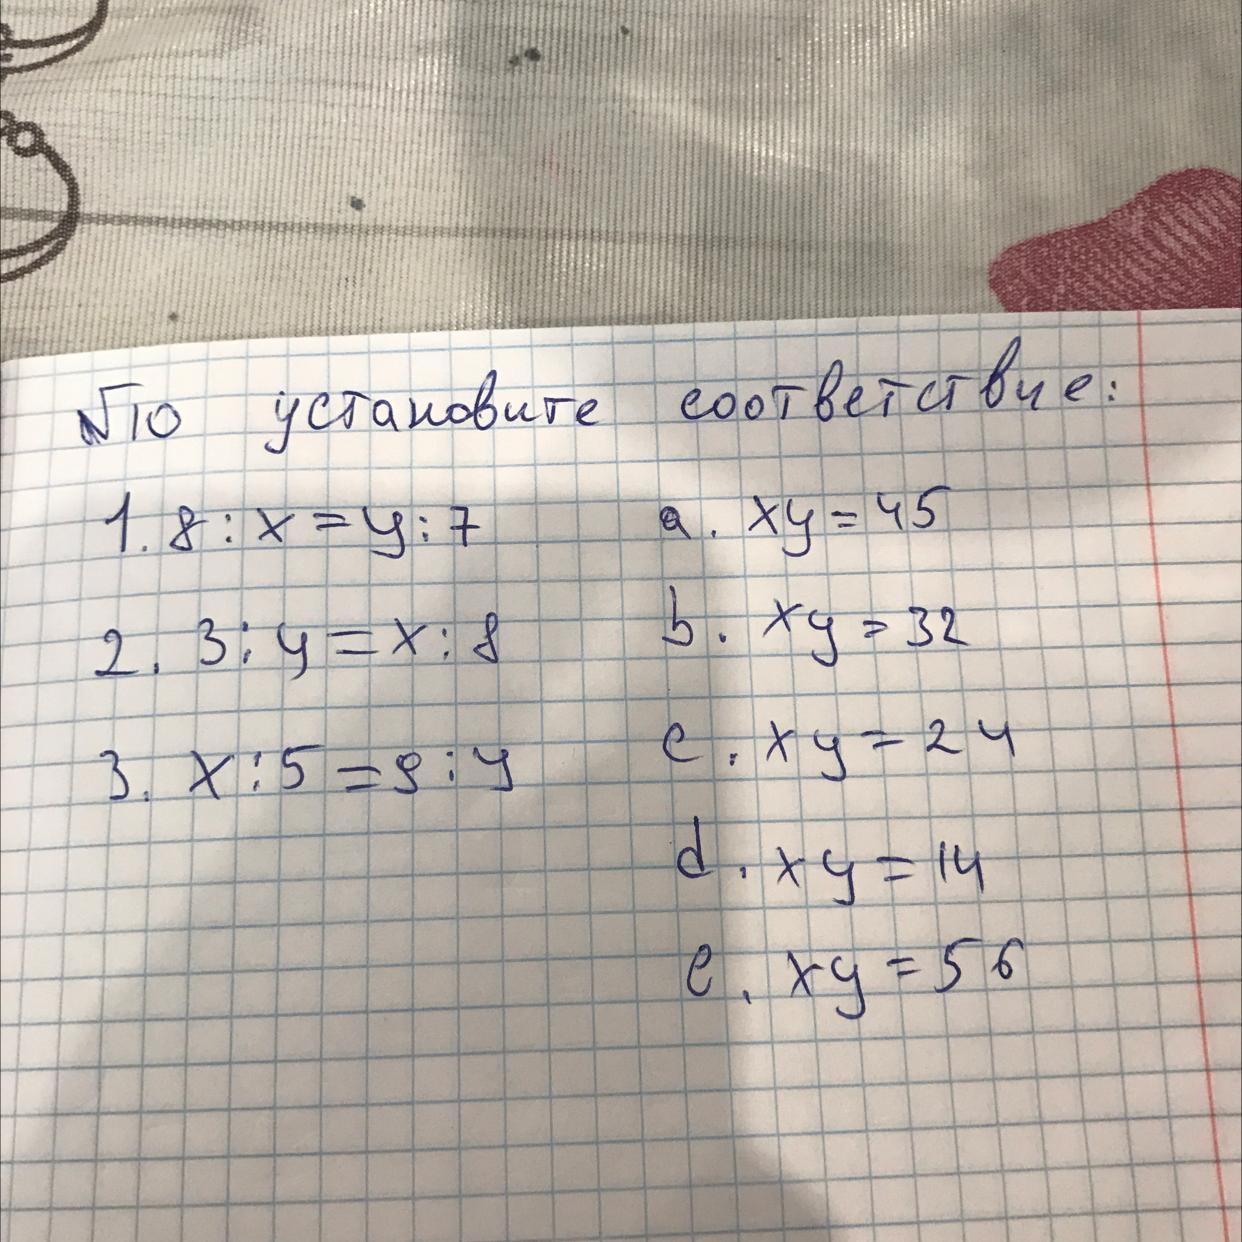 №10 установите соответствие:
1. 8 : x = y : 7
a. xy = 45
2. 3 : y = x : 8
b. xy = 32
c. xy = 24
3. x : 5 = 9 : y
d. xy = 14
e. xy = 56